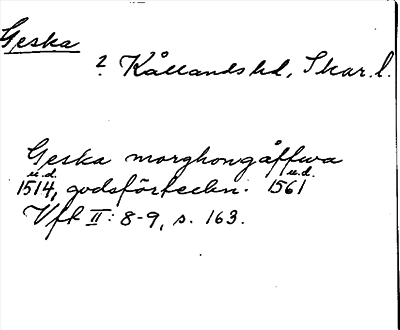 Geska
? Kållands hd, Skar. l.
Geska morghongåffwa
u.d. u.d.
1514, godsförteckn. 1561
Vft II: 8-9, s. 163.